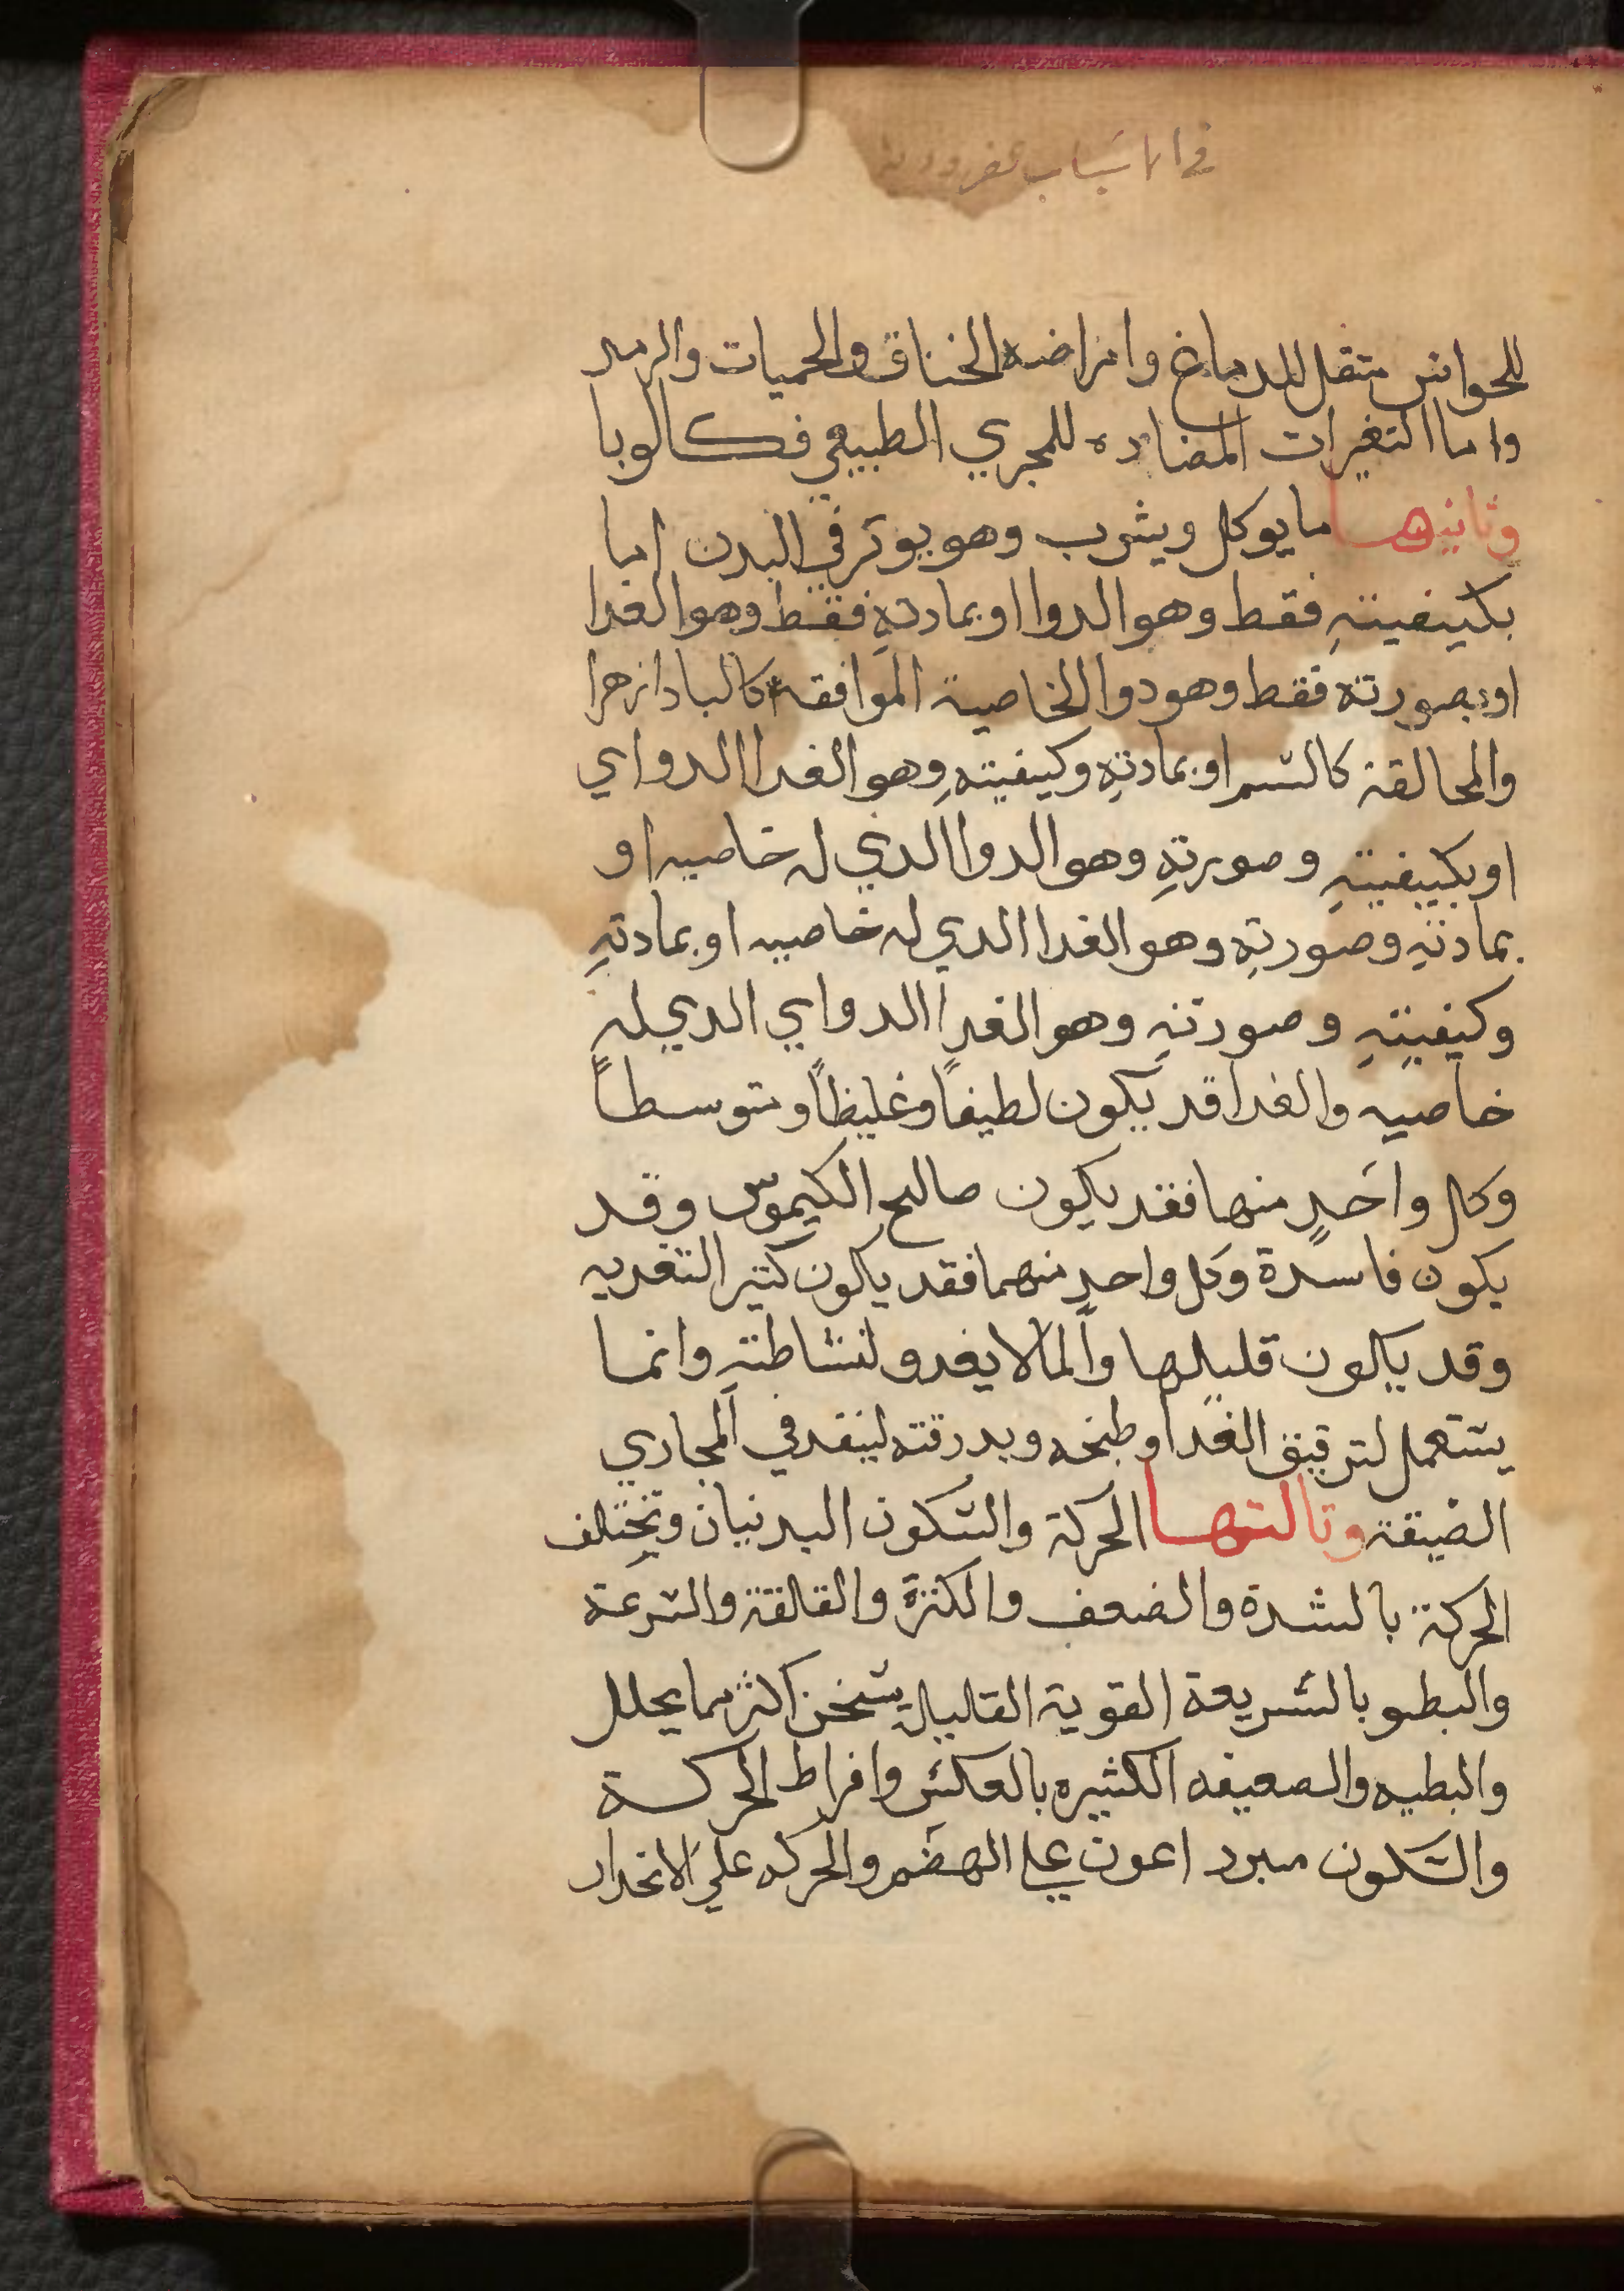 في الاسباب
للحواس مثقل للدماغ وامراضه الخناق والحميات والرمد
واما التغيرات المضاده للمجري الطبيعي فكالوبا
وثانيها ما يوكل ويشرب وهو يوثر في البدن اما
بكيفيتهِ فقط وهو الدوا او بمادتهِ فقط وهو الغدا
او بصورته فقط وهو دوا الخاصية الموافقه كالبادزهرا
والمخالفة كالسم او بمادتهِ وكيفيتهِ وهو الغدا الدواي
او بكيفيتهِ وصورتهِ وهو الدوا الدي له خاصيه او
بمادتهِ وصورتهِ وهو الغدا الدي له خاصيه او بمادتهِ
وكيفيتهِ وصورتهِ وهو الغدا الدواي الدي له
خاصيه والغدا قد يكون لطيفاً وغليظاً ومتوسطاً
وكل واحدٍ منها فقد يكون صالح الكيموس وقد
يكون فاسدة وكل واحدٍ منهما فقد يكون كثير التغديه
وقد يكون قليلها والما لا يغدو لبساطتهِ وانما
يستعمل لترقيق الغدا وطبخه وبدرقته لينفد في المجاري
الضيقة وثالثها الحركة والسكون البدنيان وتختلف
الحركة بالشدة والضعف والكثرة والقلة والسرعة
والبطو بالسريعة القوية القليله يسخن اكثر مما يحلل
والبطيه والضعيفه الكثيره بالعكس وافراط الحركة
والسكون مبرد اعون علي الهضم والحركه علي الانحدار